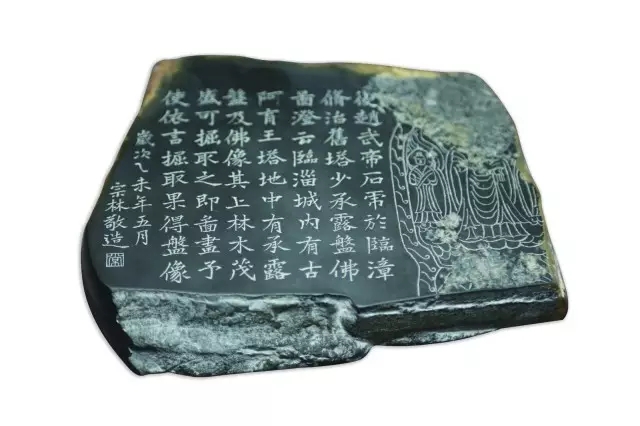 後趙武帝石虎於臨漳
脩治舊塔少承露盤佛
啚澄云臨淄城內有古
阿育王塔地中有承露
盤及佛像其上林木茂
盛可掘取之即啚畫予
使依言掘取果得盤像
歲次乙未年五月
宗林敬造